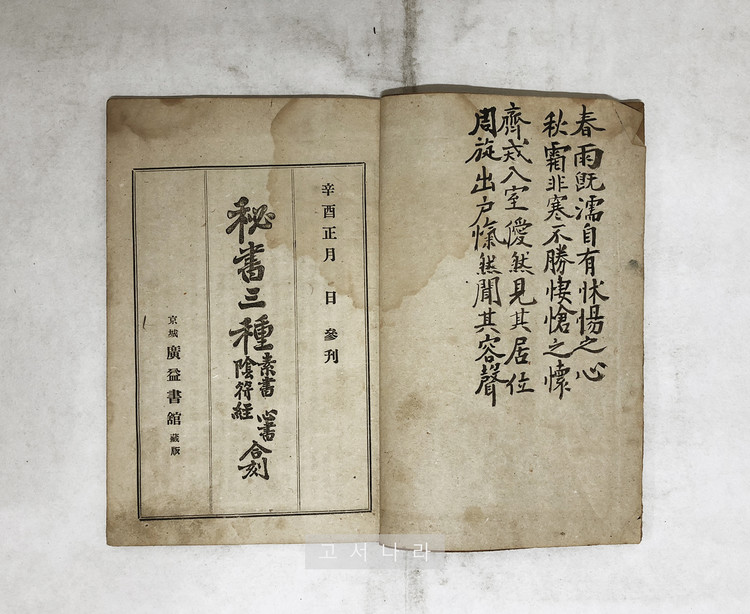 春雨旣濡自有怵惕之心
秋霜非寒不勝悽愴之懷
齊戒入室僾然見其居位
周旋出户愾然聞其容聲
辛酉正月 日 參刊
秘書三種
素書 心書
陰符經
合刻
京城 廣益書館 藏版
고서나라